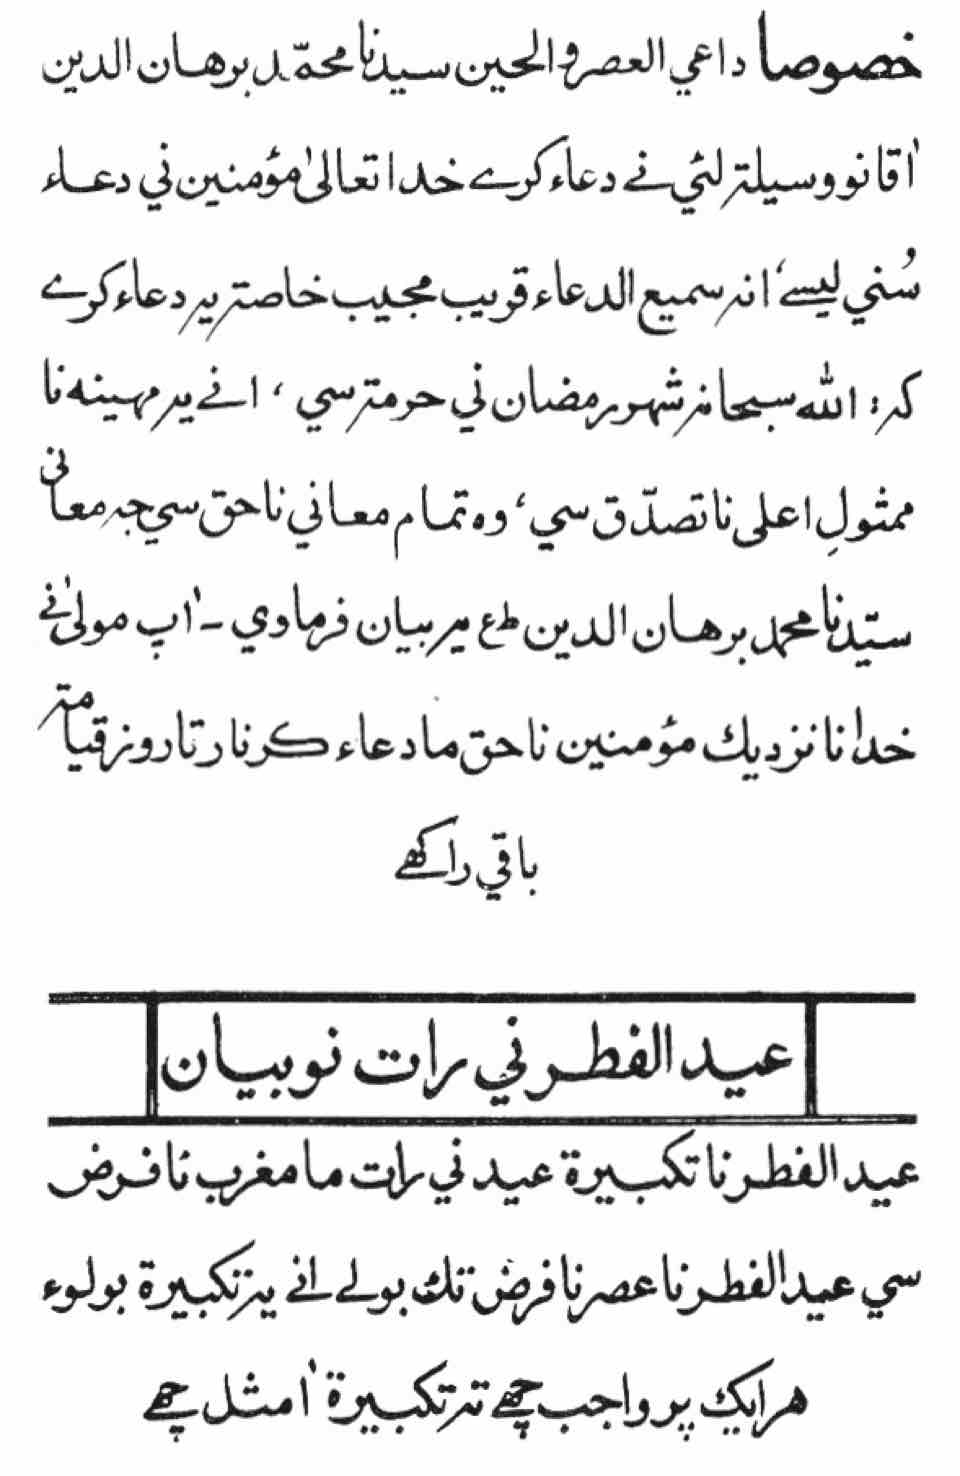 خصوصا داعي العصر والحين سيدنا محمّد برهان الدين
اٰقا نو وسيلة لئي نے دعاء كرے خدا تعالىٰ مؤمنين ني دعاء
سُني ليسے، انه سميع الدعاء قريب مجيب خاصة يه دعاء كرے
كه: الله سبحانه شهر رمضان ني حرمة سي، انے يه مهينه نا
ممثولِ اعلى نا تصدّق سي، وه تمام معاني نا حق سي جه معاني
سيّدنا محمد برهان الدين طع يه بيان فرماوي - اٰپ مولىٰ نے
خدا نا نزديك مؤمنين نا حق ما دعاء كرنار تا روز قيامة
باقي راكهے
عيد الفطر ني رات نو بيان
عيد الفطر نا تكبيرة عيد ني رات ما مغرب نا فرض
سي عيد الفطر نا عصر نا فرض تك بولے انے يه تكبيرة بولوء
هر ايك پر واجب چھے ته تكبيرة اٰ مثل چھے